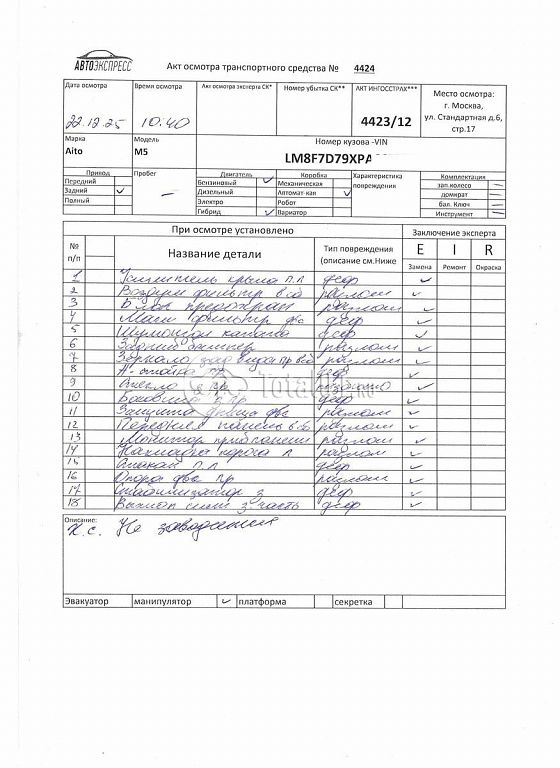 АВТОЭКСПРЕСС
Акт осмотра транспортного средства № 4424
Дата осмотра
22.12.25
Время осмотра
10:40
Акт осмотра эксперта СК*
Номер убытка СК**
АКТ ИНГОССТРАХ***
4423/12
Место осмотра:
г. Москва,
ул. Стандартная д.6,
стр.17
Марка
Aito
Модель
M5
Номер кузова -VIN
LM8F7D79XPA
Привод
Передний
Задний
Полный
Пробег
Двигатель
Бензиновый
Дизельный
Электро
Гибрид
Коробка
Механическая
Автомат-кая
Робот
Вариатор
Характеристика
повреждения
Комплектация
зап.колесо
домкрат
бал. Ключ
Инструмент
При осмотре установлено
Заключение эксперта
№
п/п
Название детали
Тип повреждения
(описание см.Ниже
E I R
Замена Ремонт Окраска
1 Усилитель крыла П.Л деф
2 Воздуш фильтр в сб разлом
3 Блок предохран разлом
4 фильтр двс деф
5 деф
6 Задний бампер разлом
7 Зеркало зад вида пр в сб разлом
8 А-стойка пр деф
9 Стекло пр
10 Боковина пр деф
11 Защита днища двс разлом
12 Передняя панель в сб разлом
13 Монитор разлом
14 Накладка порога Л разлом
15 Стакан П.Л деф
16 Опора двс Пр разлом
17 Стабилизатор з деф
18 Выхлоп сист з. часть деф
Описание:
Н.с. Не заводится
Эвакуатор манипулятор платформа секретка